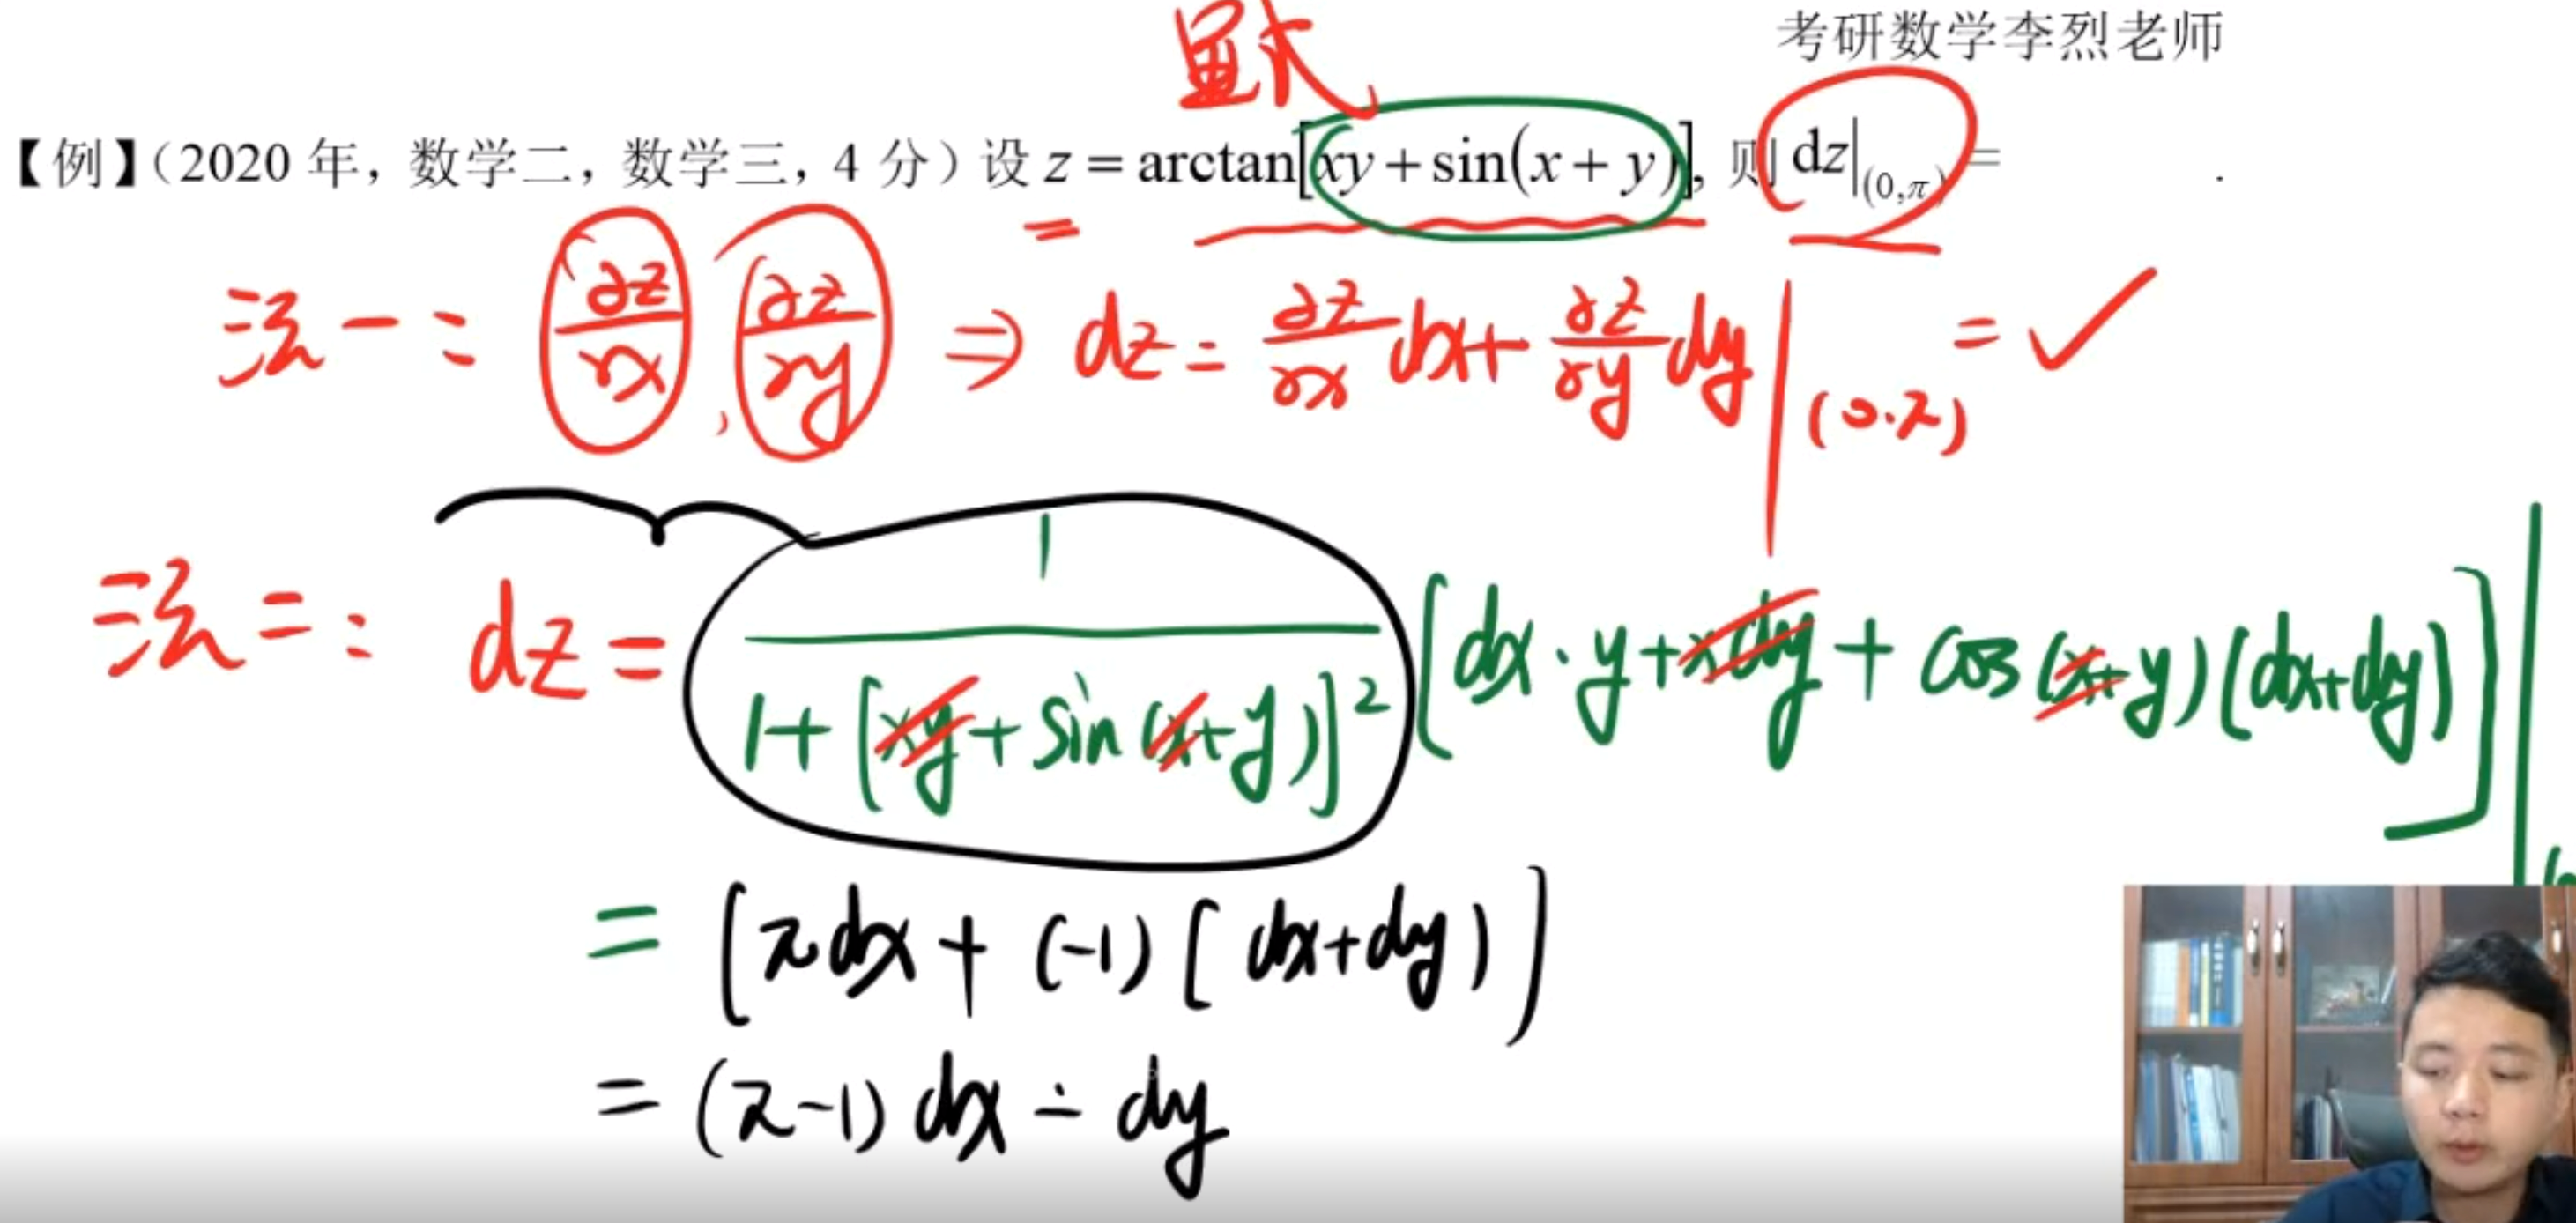 考研数学李烈老师
显式
【例】（2020 年，数学二，数学三，4 分）设 z = arctan[xy + sin(x + y)]，则 dz|(0,π) = .
法一： ∂z/∂x , ∂z/∂y ⇒ dz = ∂z/∂x dx + ∂z/∂y dy |(0.π) = ✓
法二： dz = 1/(1+[xy+sin(x+y)]²) [dx·y+xdy+cos(x+y)(dx+dy)]|
= [πdx + (-1)(dx+dy)]
= (π-1)dx - dy